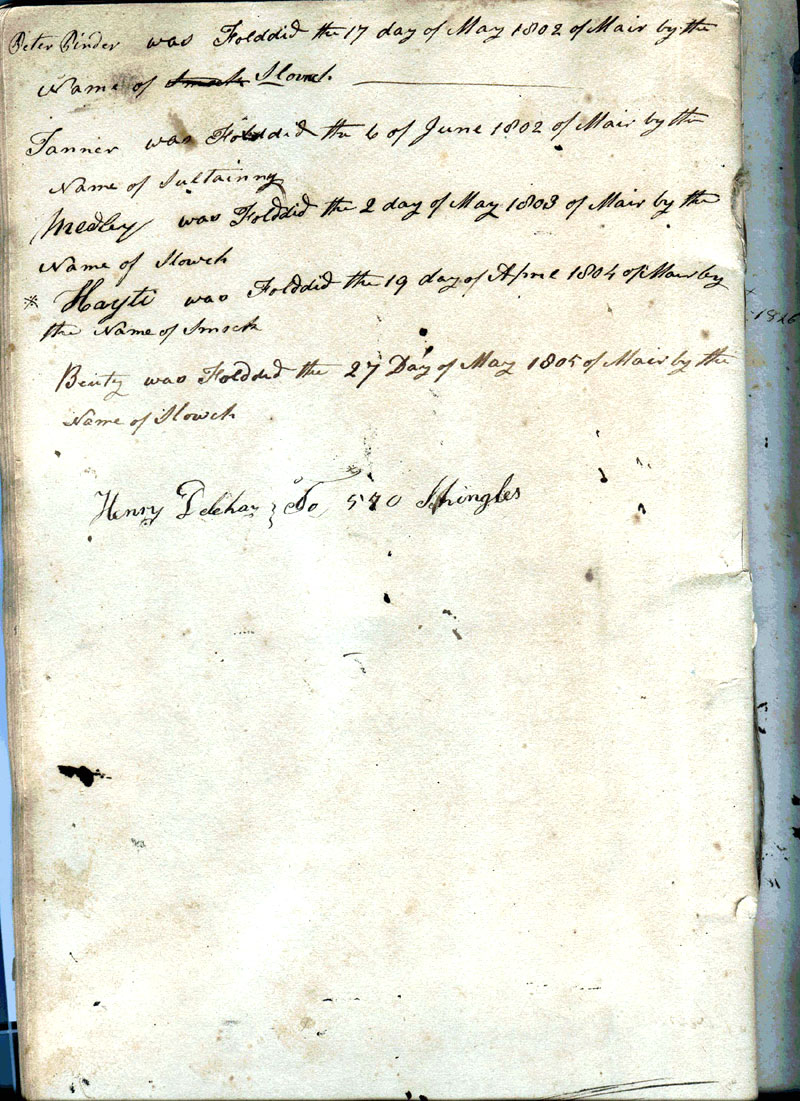 Peter Pinder was Folddid the 17 day of May 1802 of Mair by the
Name of Smock Slowch
Tanner was Folddid the 6 of June 1802 of Mair by the
Name of Sultainny
Medley was Folddid the 2 day of May 1803 of Mair by the
Name of Slowch
* Hayti was Folddid the 19 day of April 1804 of Mair by
the Name of Smock
Beuty was Foldded the 27 Day of May 1805 of Mair by the
Name of Slowch
Henry To 570 Shingles